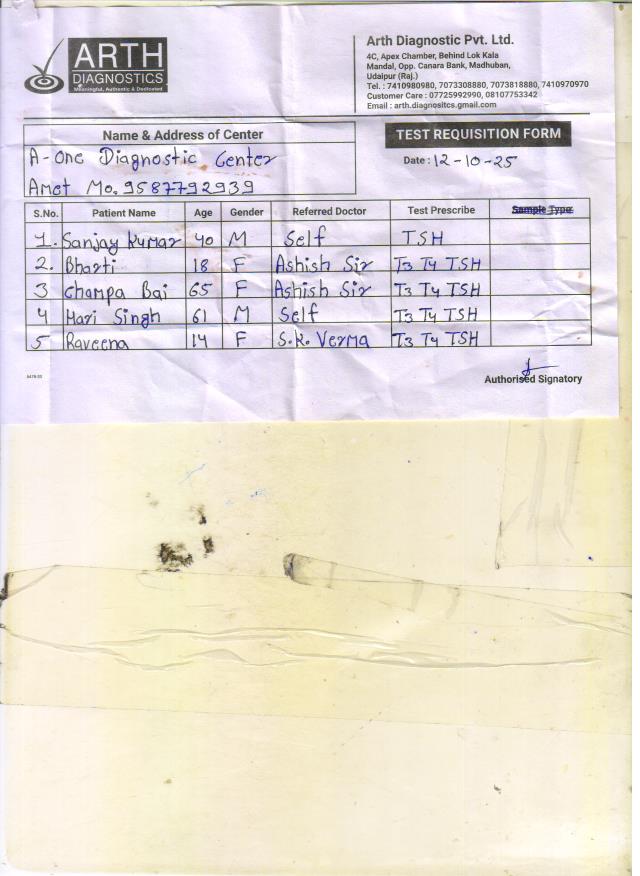 ARTH
DIAGNOSTICS
Meaningful, Authentic & Dedicated
Arth Diagnostic Pvt. Ltd.
4C, Apex Chamber, Behind Lok Kala
Mandal, Opp. Canara Bank, Madhuban,
Udaipur (Raj.)
Tel. : 7410980980, 7073308880, 7073818880, 7410970970
Customer Care : 07725992990, 08107753342
Email : arth.diagnositcs.gmail.com
Name & Address of Center
A-One Diagnostic Center
Amet Mo. 9587792939
TEST REQUISITION FORM
Date : 12-10-25
S.No. Patient Name Age Gender Referred Doctor Test Prescribe Sample Type
1. Sanjay Kumar 40 M Self TSH
2. Bharti 18 F Ashish Sir T3 T4 TSH
3 Champa Bai 65 F Ashish Sir T3 T4 TSH
4 Hari Singh 61 M Self T3 T4 TSH
5 Raveena 14 F S.K. Verma T3 T4 TSH
Authorised Signatory